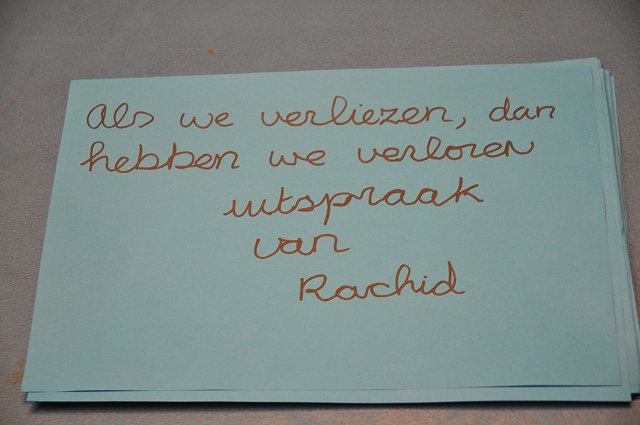 Als we verliezen, dan
hebben we verloren
uitspraak
van
Rachid